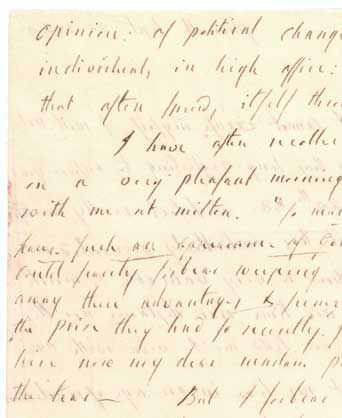 opinion: of political change
individual, in high office:
that often spread, itself thro
I have often recolle
on a very pleasant morning
with me at Milton. "So man
have such an
could scarcely forbear weeping
away these advantages &
the prize they had so recently
here now my dear madam
the tear— But I forbear